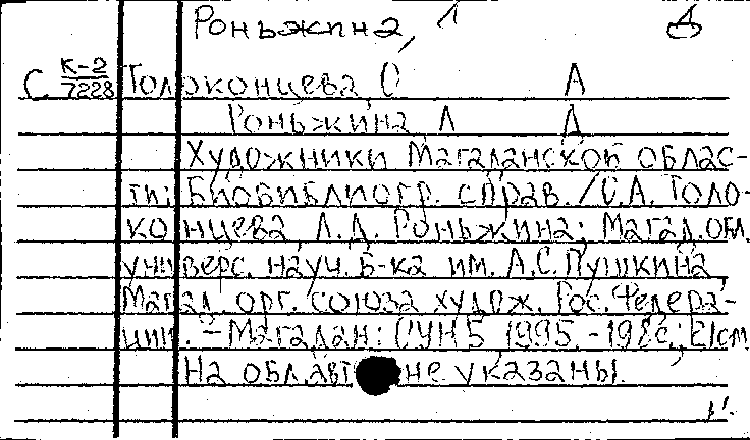 Роньжина, Л Д
С К-2/7228 Толоконцева, С А
Роньжина, Л Д
Художники Магаданской облас-
ти: Биобиблиогр. справ. / С.А. Толо-
концева, Л.Д. Роньжина; Магад. обл.
универс. науч. б-ка им. А.С. Пушкина,
Магад. орг. союза худож. Рос. Федера-
ции. - Магадан: ОУНБ 1995. - 198с.; 21см
На обл. авт. не указаны.